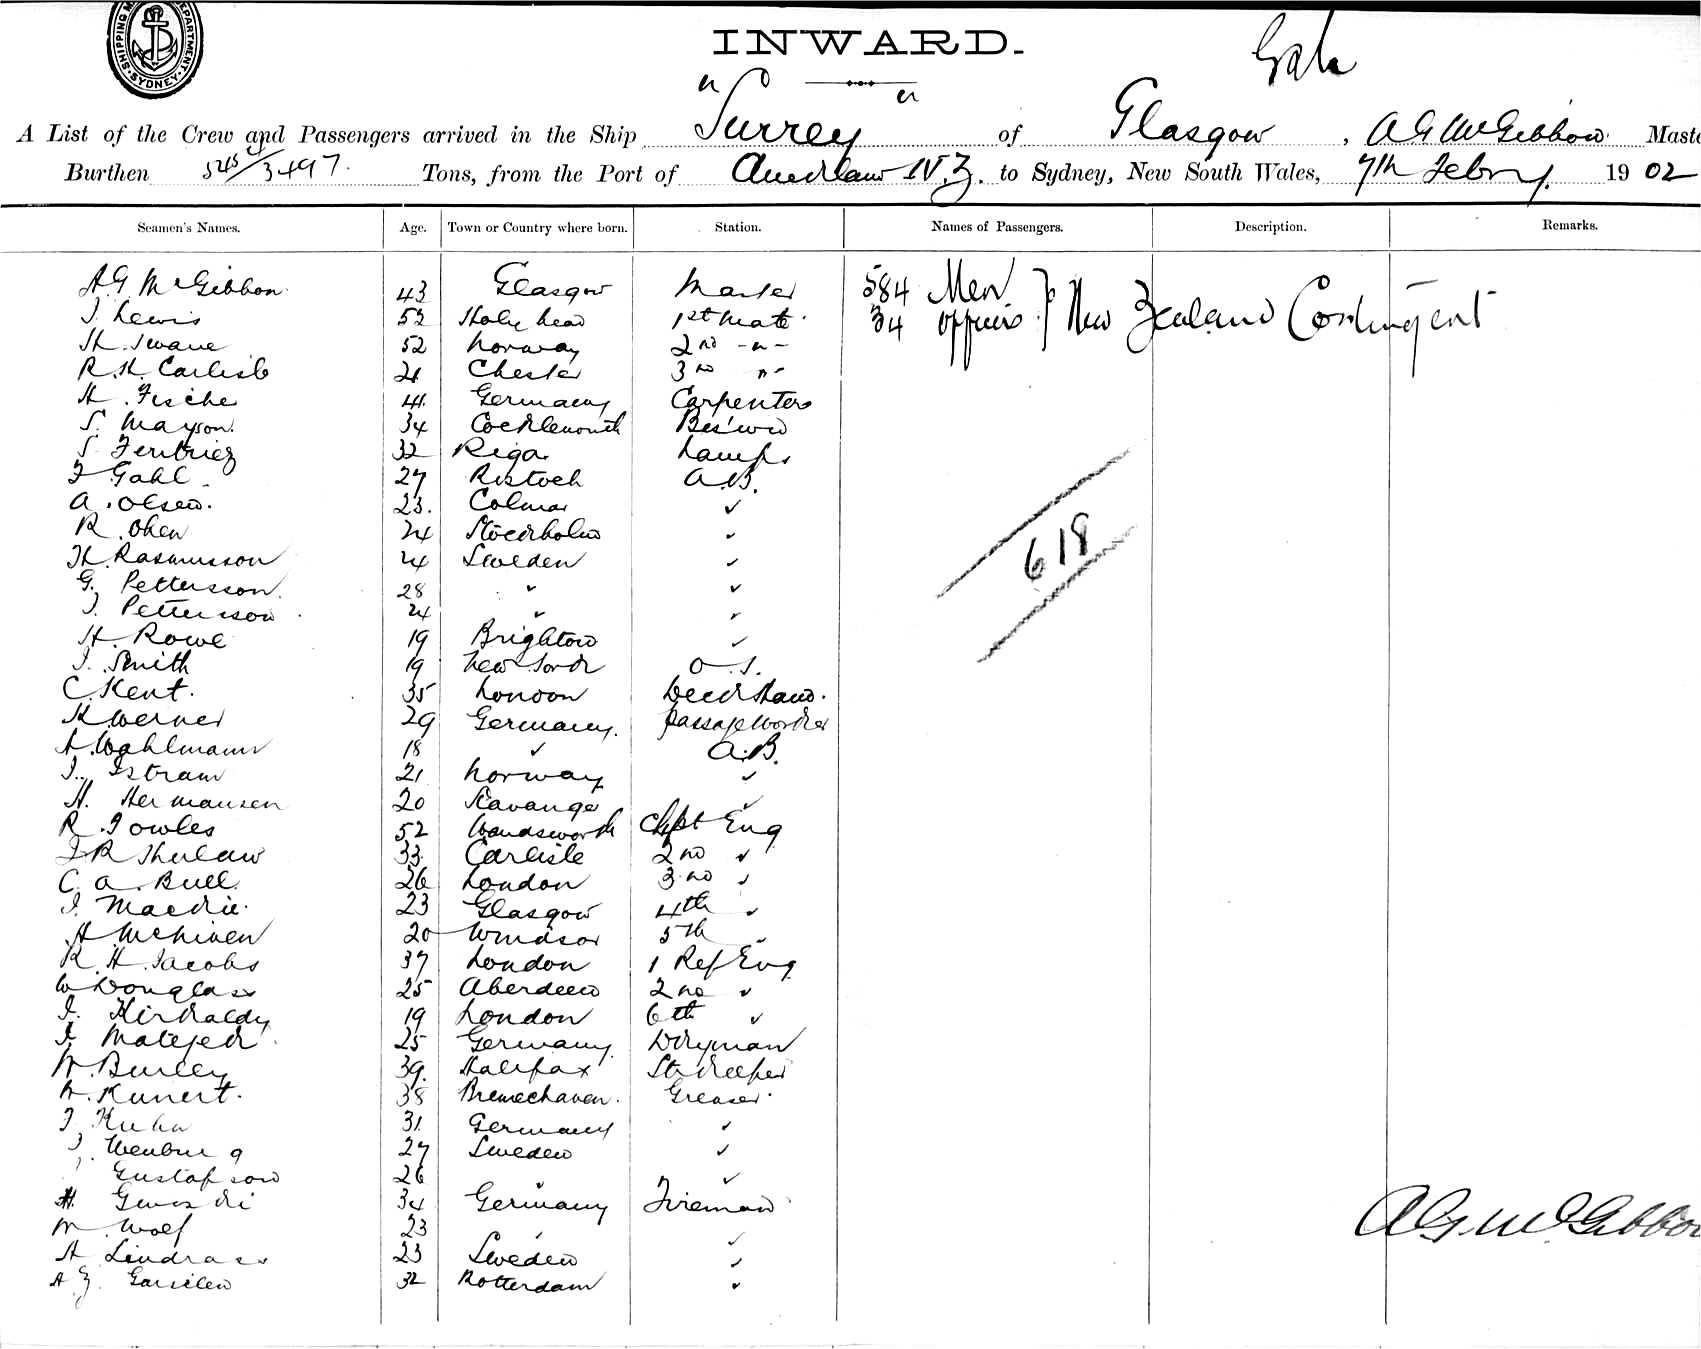 SHIPPING M DEPARTMENT. SYDNEY
INWARD.
A List of the Crew and Passengers arrived in the Ship "Surrey" of Glasgow, A G McGibbon Maste
Burthen 5455/3497. Tons, from the Port of N.Z. to Sydney, New South Wales, 7th Febry. 1902
Seamen's Names. Age. Town or Country where born. Station. Names of Passengers. Description. Remarks.
A G McGibbon 43 Glasgow Master 584 Men } New Zealand Contingent
J. Lewis 52 Holy head 1st Mate 34 officers
H. 52 Norway 2nd -"-
R. H. Carlisle 21 Chester 3rd "-
H. Fische 41. Germany Carpenter
S. Mayson. 34 Bos'wn
S. 32 Riga Lamps
F Gahl. 27 Rostock A.B.
A. Olsen. 23. Colmar ✓
R. 24 Stockholm ✓
H. Rasmusson 24 Sweden ✓
G. Pettersson. 28 ✓ ✓
J. Pettersson 24 ✓ ✓
H. Rowe 19 Brighton ✓
J. Smith 19 O.S.
C. Kent. 35 London Deckhand.
K Werner 29 Germany. passage worker
A. Wahlmann 18 ✓ A.B.
J. Istram 21 Norway ✓
H. Hermansen 20 Stavanger ✓
R. Fowles 52 Wandsworth Chf Eng
J. R 33 Carlisle 2nd ✓
C. A. Bull. 26 London 3rd ✓
J. Mackie. 23 Glasgow 4th ✓
A McNiven 20 Windsor 5th ✓
R. H. Jacobs 37 London 1 Ref Eng
W Douglas 25 Aberdeen 2nd ✓
J. Kirkaldy 19 London 6th ✓
25 Germany.
W. Burley 39. Halifax Strkeeper
W. Kunert. 38 Bremerhaven. Greaser.
J Kuhn 31 Germany ✓
J. 27 Sweden ✓
Gustafson 26 ✓ ✓
H. 34 Germany Fireman
W Wolf 23 ✓ ✓
A 23 Sweden ✓
A 32 Rotterdam ✓
618
A G McGibbon